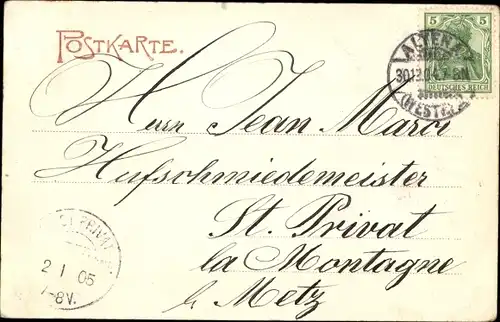 POSTKARTE.
5 5
DEUTSCHES REICH
ALTENA
30.12.04.7-8N
(WESTF.)
Herrn Jean Marci
Hufschmiedemeister
St. Privat
la Montagne
b. Metz
2 1 05
7-8V.